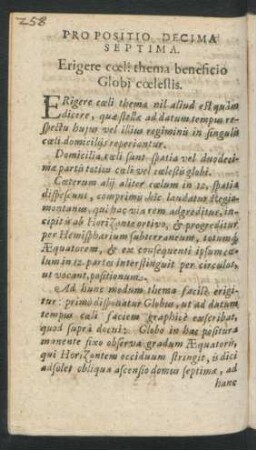 258
PROPOSITIO DECIMA
SEPTIMA.
Erigere cœli thema beneficio
Globi cœlestis.
ERigere cæli thema nil aliud est quàm
dicere, quæ stellæ ad datum tempus re-
spectu hujus vel illius regiminis in singulis
cœli domiciliis reperiantur.
Domicilia cæli sunt spatia vel duodeci-
ma partitiotius cæli vel cælestis globi.
Cæterum alij aliter cælum in 12. spatia
disposcunt, comprimis hîc laudatur Regio-
montanus, qui hac via rem adgreditur, in-
cipit is ab Horizonte ortivo, & progreditur
per Hemisphærium subterraneum, totumq́;
Æquatorem, & ex consequenti ipsum cœ-
lum in 12. partes interstinguit per circulos,
ut vocant, positionum.
Ad hunc modum thema facilè erigi-
tur: primò disponatur Globus, ut ad datum
tempus cæli faciem graphicè exscribat,
quod suprà docui: Globo in hac positura
manente fixo observa gradum Æquatoris,
qui Horizontem occiduum stringit, is dici
adsolet obliqua ascensio domus septimæ, ad
hanc